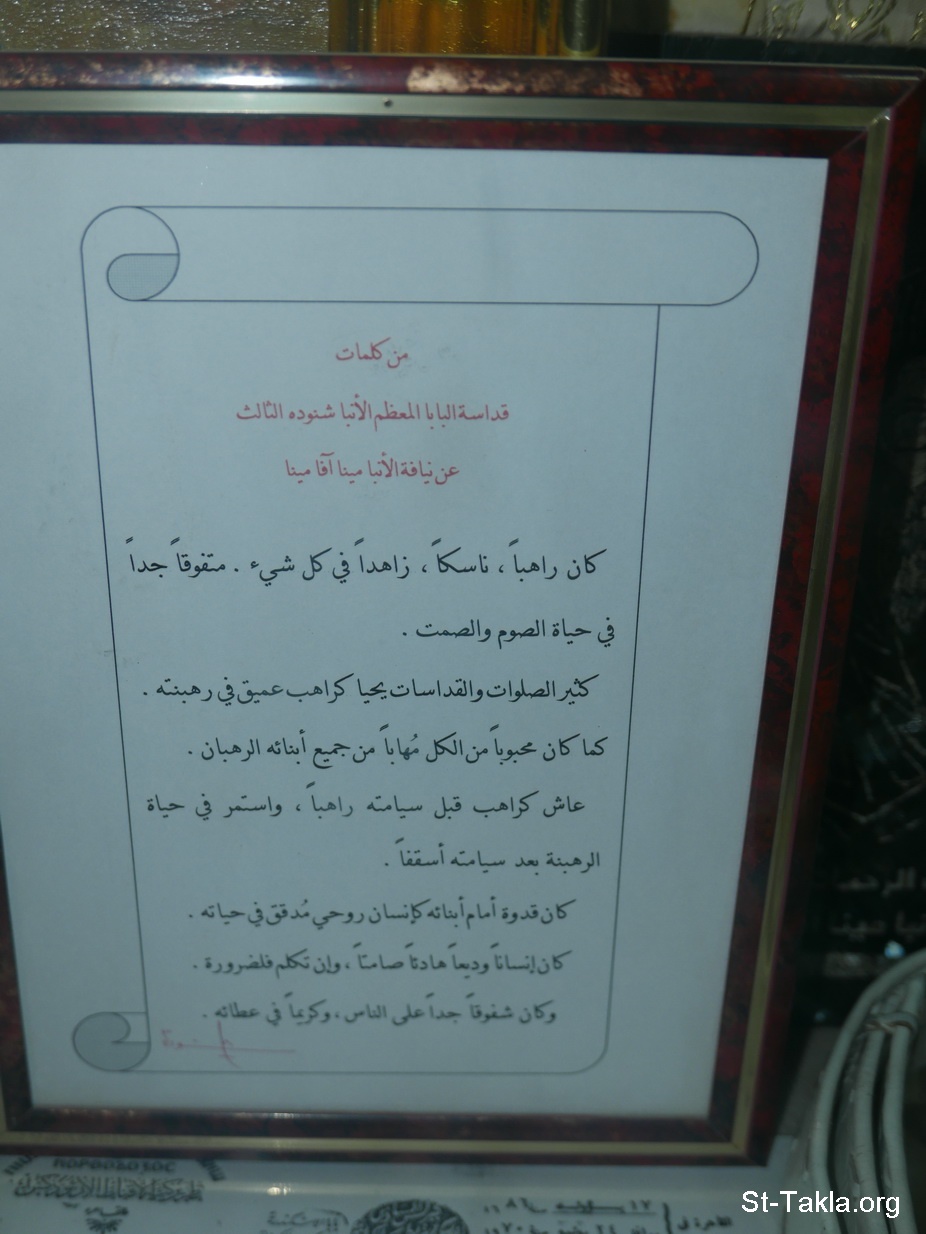 من كلمات
قداسة البابا المعظم الأنبا شنوده الثالث
عن نيافة الأنبا مينا آفا مينا
كان راهباً ، ناسكاً ، زاهداً في كل شيء . متفوقاً جداً
في حياة الصوم والصمت .
كثير الصلوات والقداسات يحيا كراهب عميق في رهبنته .
كما كان محبوباً من الكل مُهاباً من جميع أبنائه الرهبان .
عاش كراهب قبل سيامته راهباً ، واستمر في حياة
الرهبنة بعد سيامته أسقفاً .
كان قدوة أمام أبنائه كإنسان روحي مُدقق في حياته .
كان إنساناً وديعاً هادئاً صامتاً ، وإن تكلم فلضرورة .
وكان شفوقاً جداً على الناس ، وكريماً في عطائه .
St-Takla.org